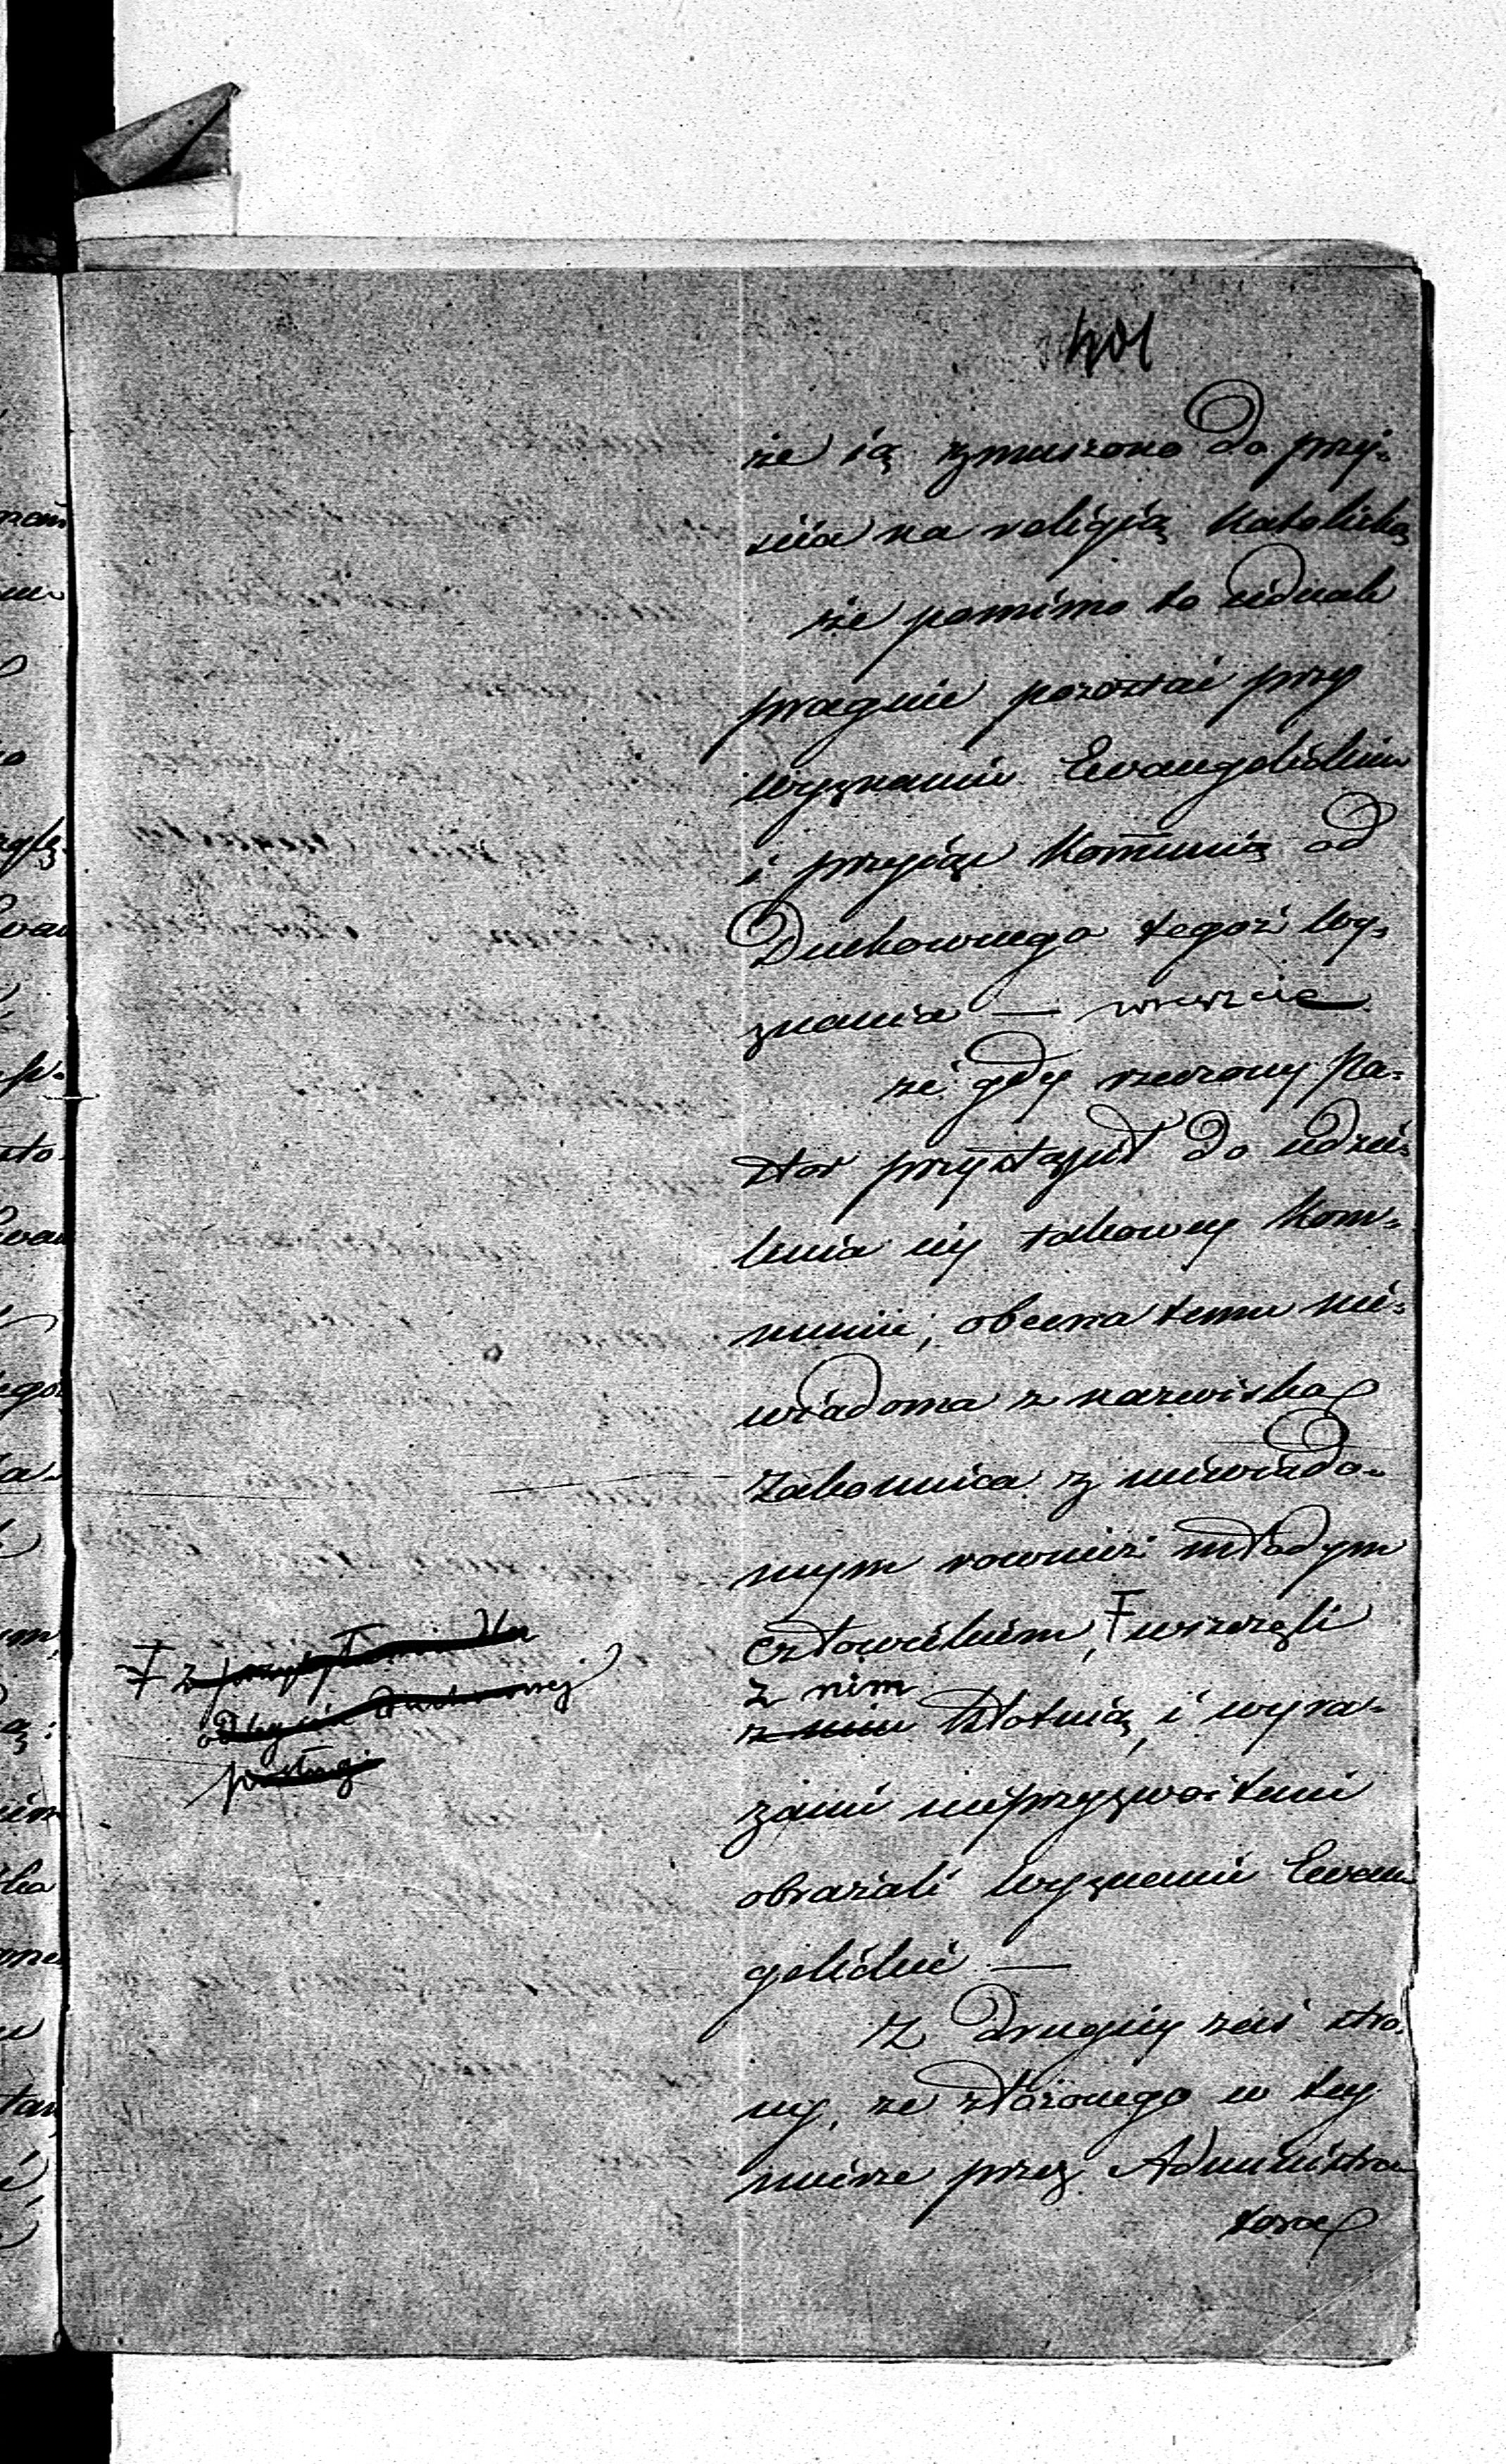 401
że ią zmuszono do przej-
scia na religią Katolicką
że pomimo to iednak
pragnie pozostać przy
wyznaniu Ewangelickim
i przyiąć Kommunią od
Duchownego tegoż wy-
znania — wreszcie
że gdy rzeczony Pa-
stor przystąpił do udzie-
lenia iey takowey Kom-
munii, obecna temu nie-
wiadoma z nazwiska
Zakonnica z niewiado-
mym rownież młodym
człowiekiem, Ŧ wszczęli
Ŧ z przybyłemi dla
odbycia Duchowney
posługi
z nim
z nim kłotnią, i wyra-
zami nieprzyzwoitemi
obrażali wyznanie Ewan-
gelickie —
Z drugiey zaś stro-
ny, ze złożonego w tey
mierze przez Administra-
tora